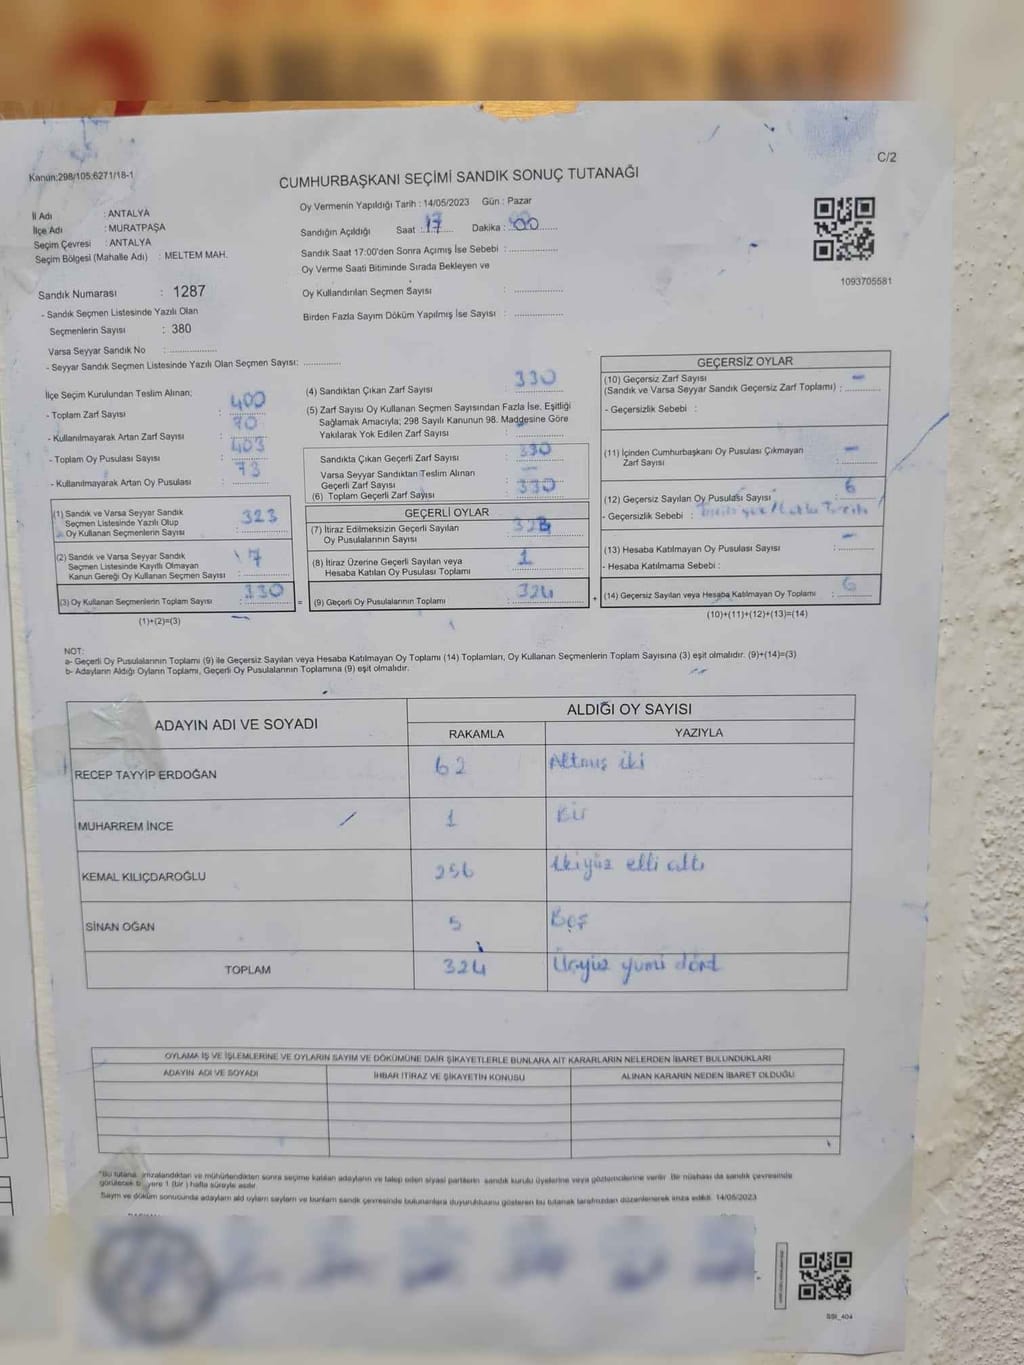 Kanun:298/105;6271/18-1
C/2
CUMHURBAŞKANI SEÇİMİ SANDIK SONUÇ TUTANAĞI
İl Adı : ANTALYA
İlçe Adı : MURATPAŞA
Seçim Çevresi : ANTALYA
Seçim Bölgesi (Mahalle Adı) : MELTEM MAH.
Oy Vermenin Yapıldığı Tarih : 14/05/2023 Gün : Pazar
Sandığın Açıldığı Saat : 17 Dakika : 00
Sandık Saat 17:00'den Sonra Açımış İse Sebebi :
Oy Verme Saati Bitiminde Sırada Bekleyen ve
Oy Kullandırılan Seçmen Sayısı :
Birden Fazla Sayım Döküm Yapılmış İse Sayısı :
1093705581
Sandık Numarası : 1287
- Sandık Seçmen Listesinde Yazılı Olan
Seçmenlerin Sayısı : 380
Varsa Seyyar Sandık No :
- Seyyar Sandık Seçmen Listesinde Yazılı Olan Seçmen Sayısı:
İlçe Seçim Kurulundan Teslim Alınan;
- Toplam Zarf Sayısı : 400
- Kullanılmayarak Artan Zarf Sayısı : 70
- Toplam Oy Pusulası Sayısı : 403
- Kullanılmayarak Artan Oy Pusulası : 73
(1) Sandık ve Varsa Seyyar Sandık
Seçmen Listesinde Yazılı Olup
Oy Kullanan Seçmenlerin Sayısı : 323
(2) Sandık ve Varsa Seyyar Sandık
Seçmen Listesinde Kayıtlı Olmayan
Kanun Gereği Oy Kullanan Seçmen Sayısı : 7
(3) Oy Kullanan Seçmenlerin Toplam Sayısı : 330
(1)+(2)=(3)
(4) Sandıktan Çıkan Zarf Sayısı : 330
(5) Zarf Sayısı Oy Kullanan Seçmen Sayısından Fazla İse, Eşitliği
Sağlamak Amacıyla; 298 Sayılı Kanunun 98. Maddesine Göre
Yakılarak Yok Edilen Zarf Sayısı :
Sandıkta Çıkan Geçerli Zarf Sayısı : 330
Varsa Seyyar Sandıktan Teslim Alınan
Geçerli Zarf Sayısı : —
(6) Toplam Geçerli Zarf Sayısı : 330
GEÇERLİ OYLAR
(7) İtiraz Edilmeksizin Geçerli Sayılan
Oy Pusulalarının Sayısı : 323
(8) İtiraz Üzerine Geçerli Sayılan veya
Hesaba Katılan Oy Pusulası Toplamı : 1
= (9) Geçerli Oy Pusulalarının Toplamı : 324
GEÇERSİZ OYLAR
(10) Geçersiz Zarf Sayısı
(Sandık ve Varsa Seyyar Sandık Geçersiz Zarf Toplamı) : —
- Geçersizlik Sebebi :
(11) İçinden Cumhurbaşkanı Oy Pusulası Çıkmayan
Zarf Sayısı : —
(12) Geçersiz Sayılan Oy Pusulası Sayısı : 6
- Geçersizlik Sebebi :
(13) Hesaba Katılmayan Oy Pusulası Sayısı : —
- Hesaba Katılmama Sebebi :
+ (14) Geçersiz Sayılan veya Hesaba Katılmayan Oy Toplamı : 6
(10)+(11)+(12)+(13)=(14)
NOT:
a- Geçerli Oy Pusulalarının Toplamı (9) ile Geçersiz Sayılan veya Hesaba Katılmayan Oy Toplamı (14) Toplamları, Oy Kullanan Seçmenlerin Toplam Sayısına (3) eşit olmalıdır. (9)+(14)=(3)
b- Adayların Aldığı Oyların Toplamı, Geçerli Oy Pusulalarının Toplamına (9) eşit olmalıdır.
ADAYIN ADI VE SOYADI ALDIĞI OY SAYISI
RAKAMLA YAZIYLA
RECEP TAYYİP ERDOĞAN 62 Altmış iki
MUHARREM İNCE 1 Bir
KEMAL KILIÇDAROĞLU 256 İkiyüz elli altı
SİNAN OĞAN 5 Beş
TOPLAM 324 Üçyüz yirmi dört
OYLAMA İŞ VE İŞLEMLERİNE VE OYLARIN SAYIM VE DÖKÜMÜNE DAİR ŞİKAYETLERLE BUNLARA AİT KARARLARIN NELERDEN İBARET BULUNDUKLARI
ADAYIN ADI VE SOYADI İHBAR İTİRAZ VE ŞİKAYETİN KONUSU ALINAN KARARIN NEDEN İBARET OLDUĞU
imzalandıktan ve mühürlendikten sonra seçime katılan adayların ve talep eden siyasi partilerin sandık kurulu üyelerine veya gözlemcilerine verilir. Bir nüshası da sandık çevresinde
görülecek yere 1 (bir) hafta süreyle asılır.
Sayım ve döküm sonucunda adayların sandık çevresinde bulunanlara duyurulduğunu gösteren bu tutanak tarafımızdan düzenlenerek imza edildi. 14/05/2023
SSI_404